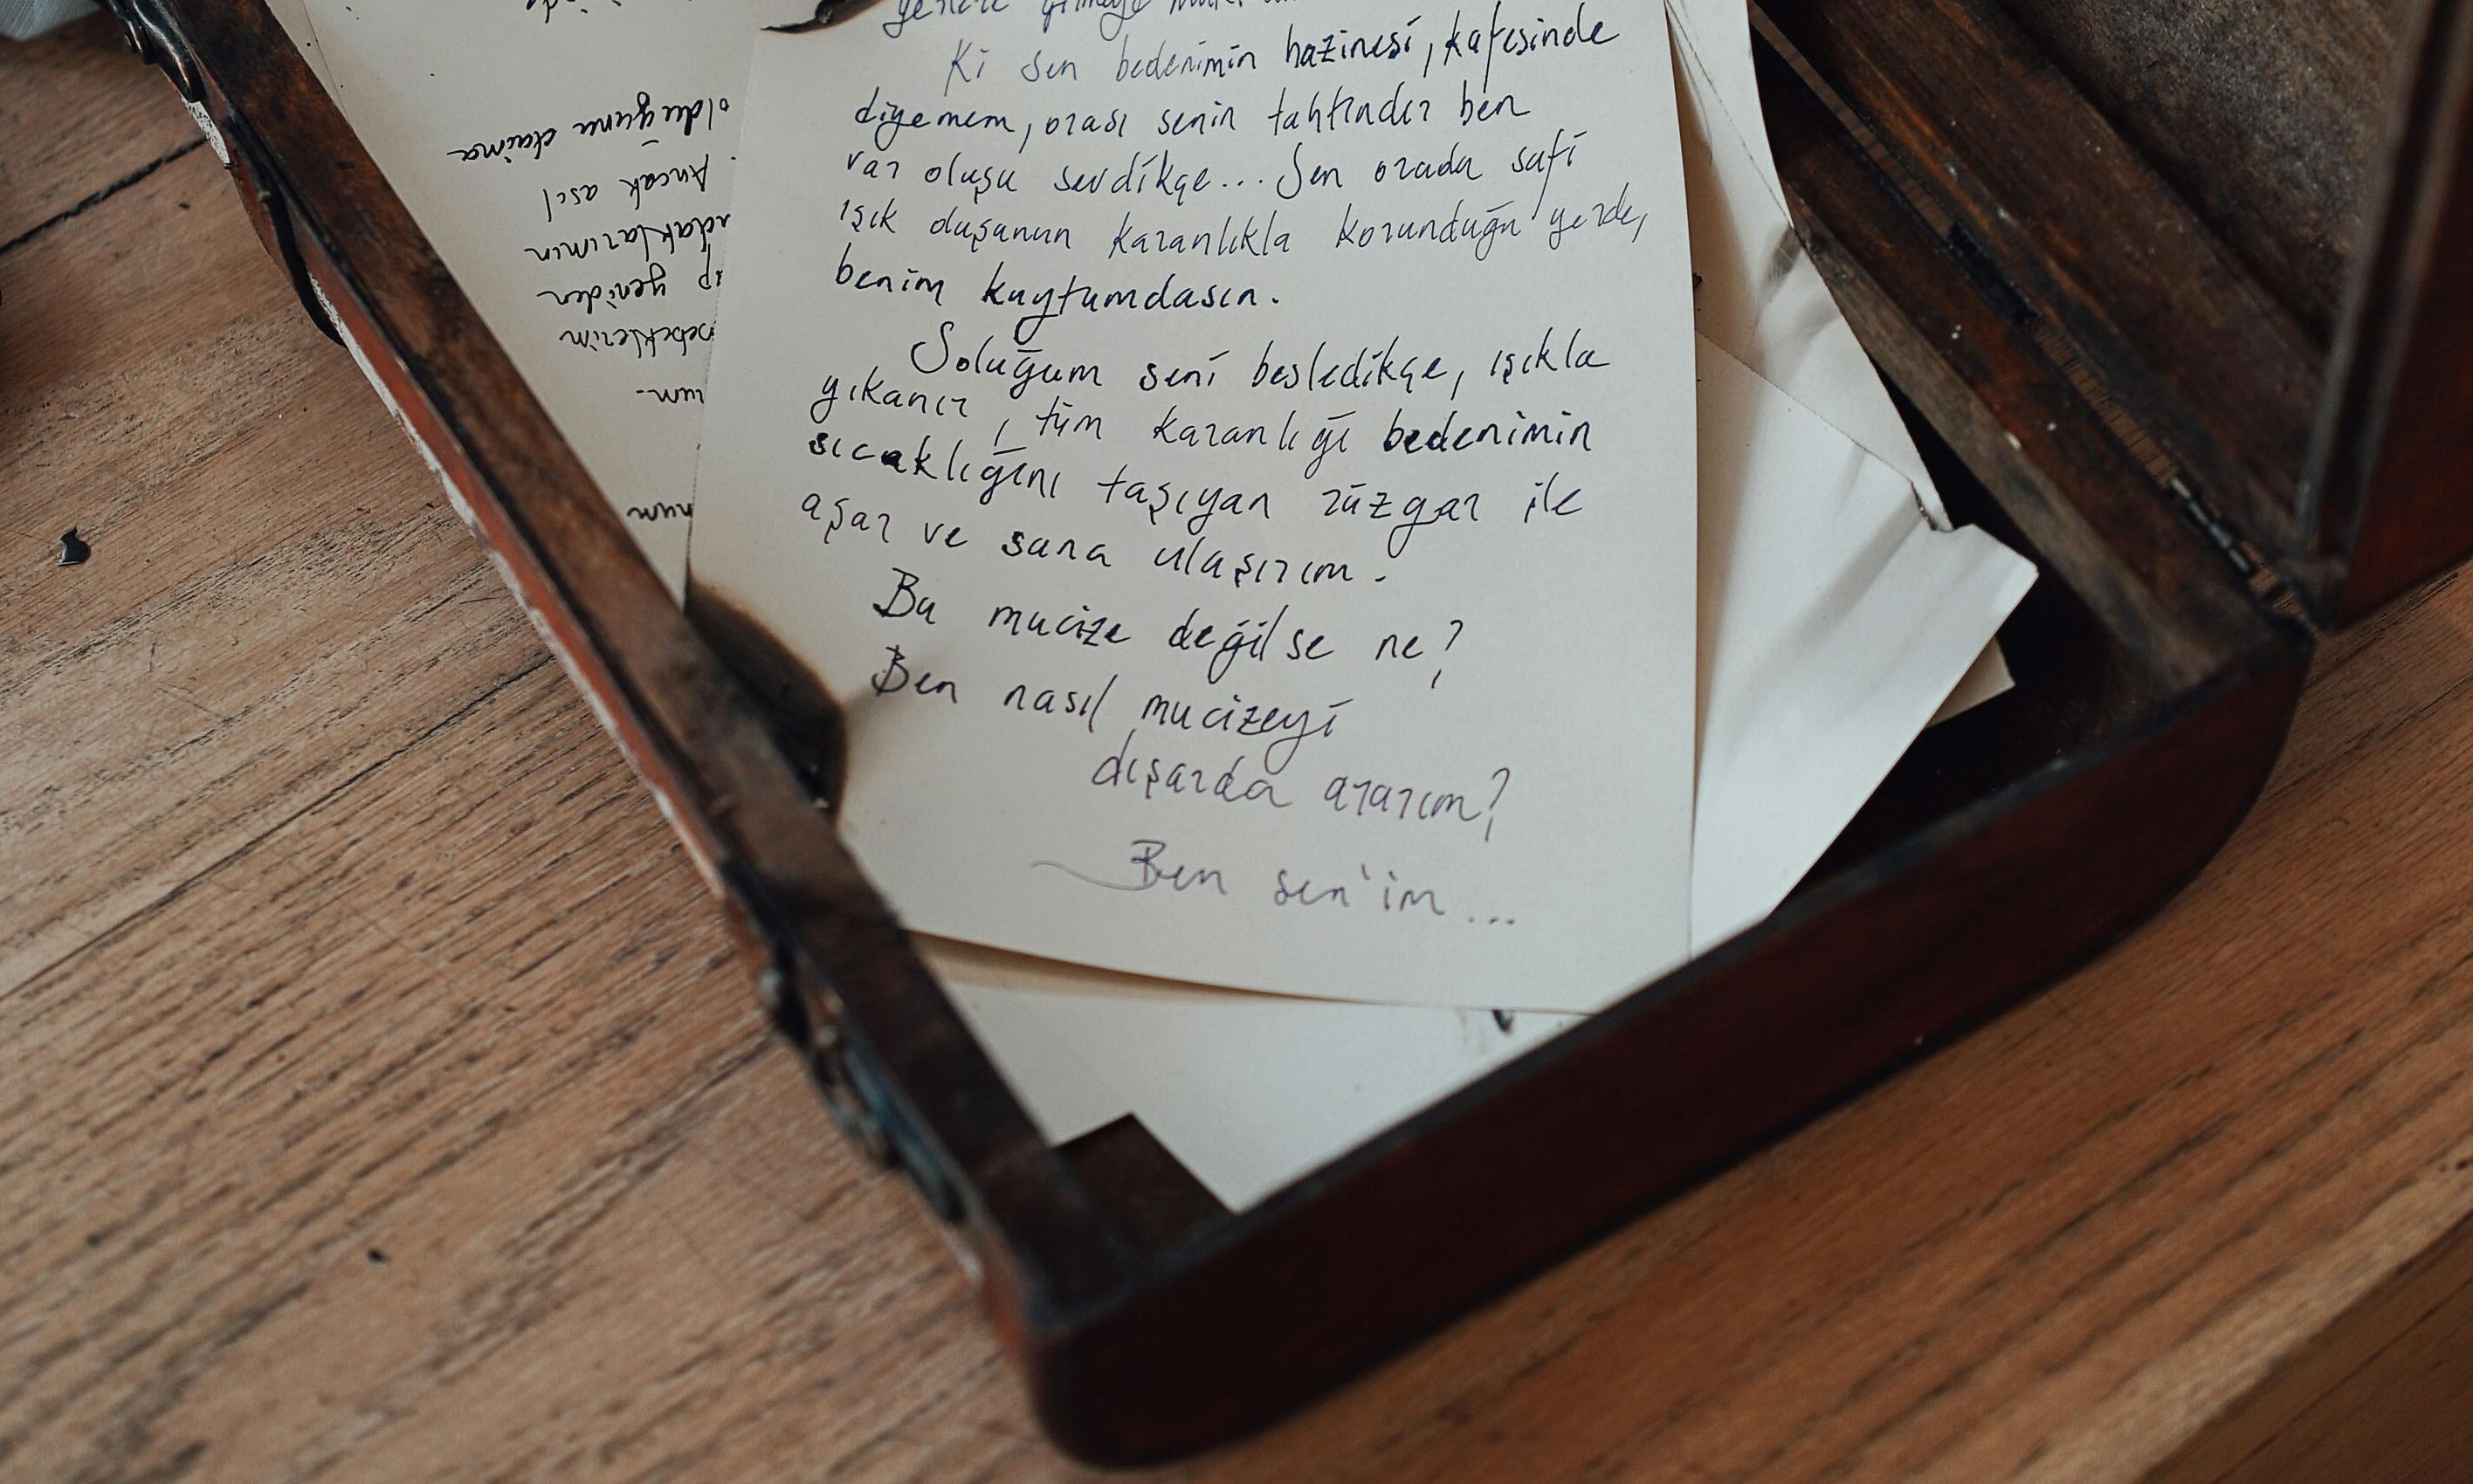 Ki sen bedenimin hazinesi, kafesinde
diyemem, orası senin tahtındır ben
var oluşu sevdikçe... Sen orada safi
ışık duşunun karanlıkla korunduğu yerde,
benim kuytumdasın.
Soluğum seni besledikçe, ışıkla
yıkanır, tüm karanlığı bedenimin
sıcaklığını taşıyan rüzgar ile
aşar ve sana ulaşırım.
Bu mucize değilse ne?
Ben nasıl mucizeyi
dışarda ararım?
Ben sen'im...
olduğunu daima
Ancak asıl
yeniden